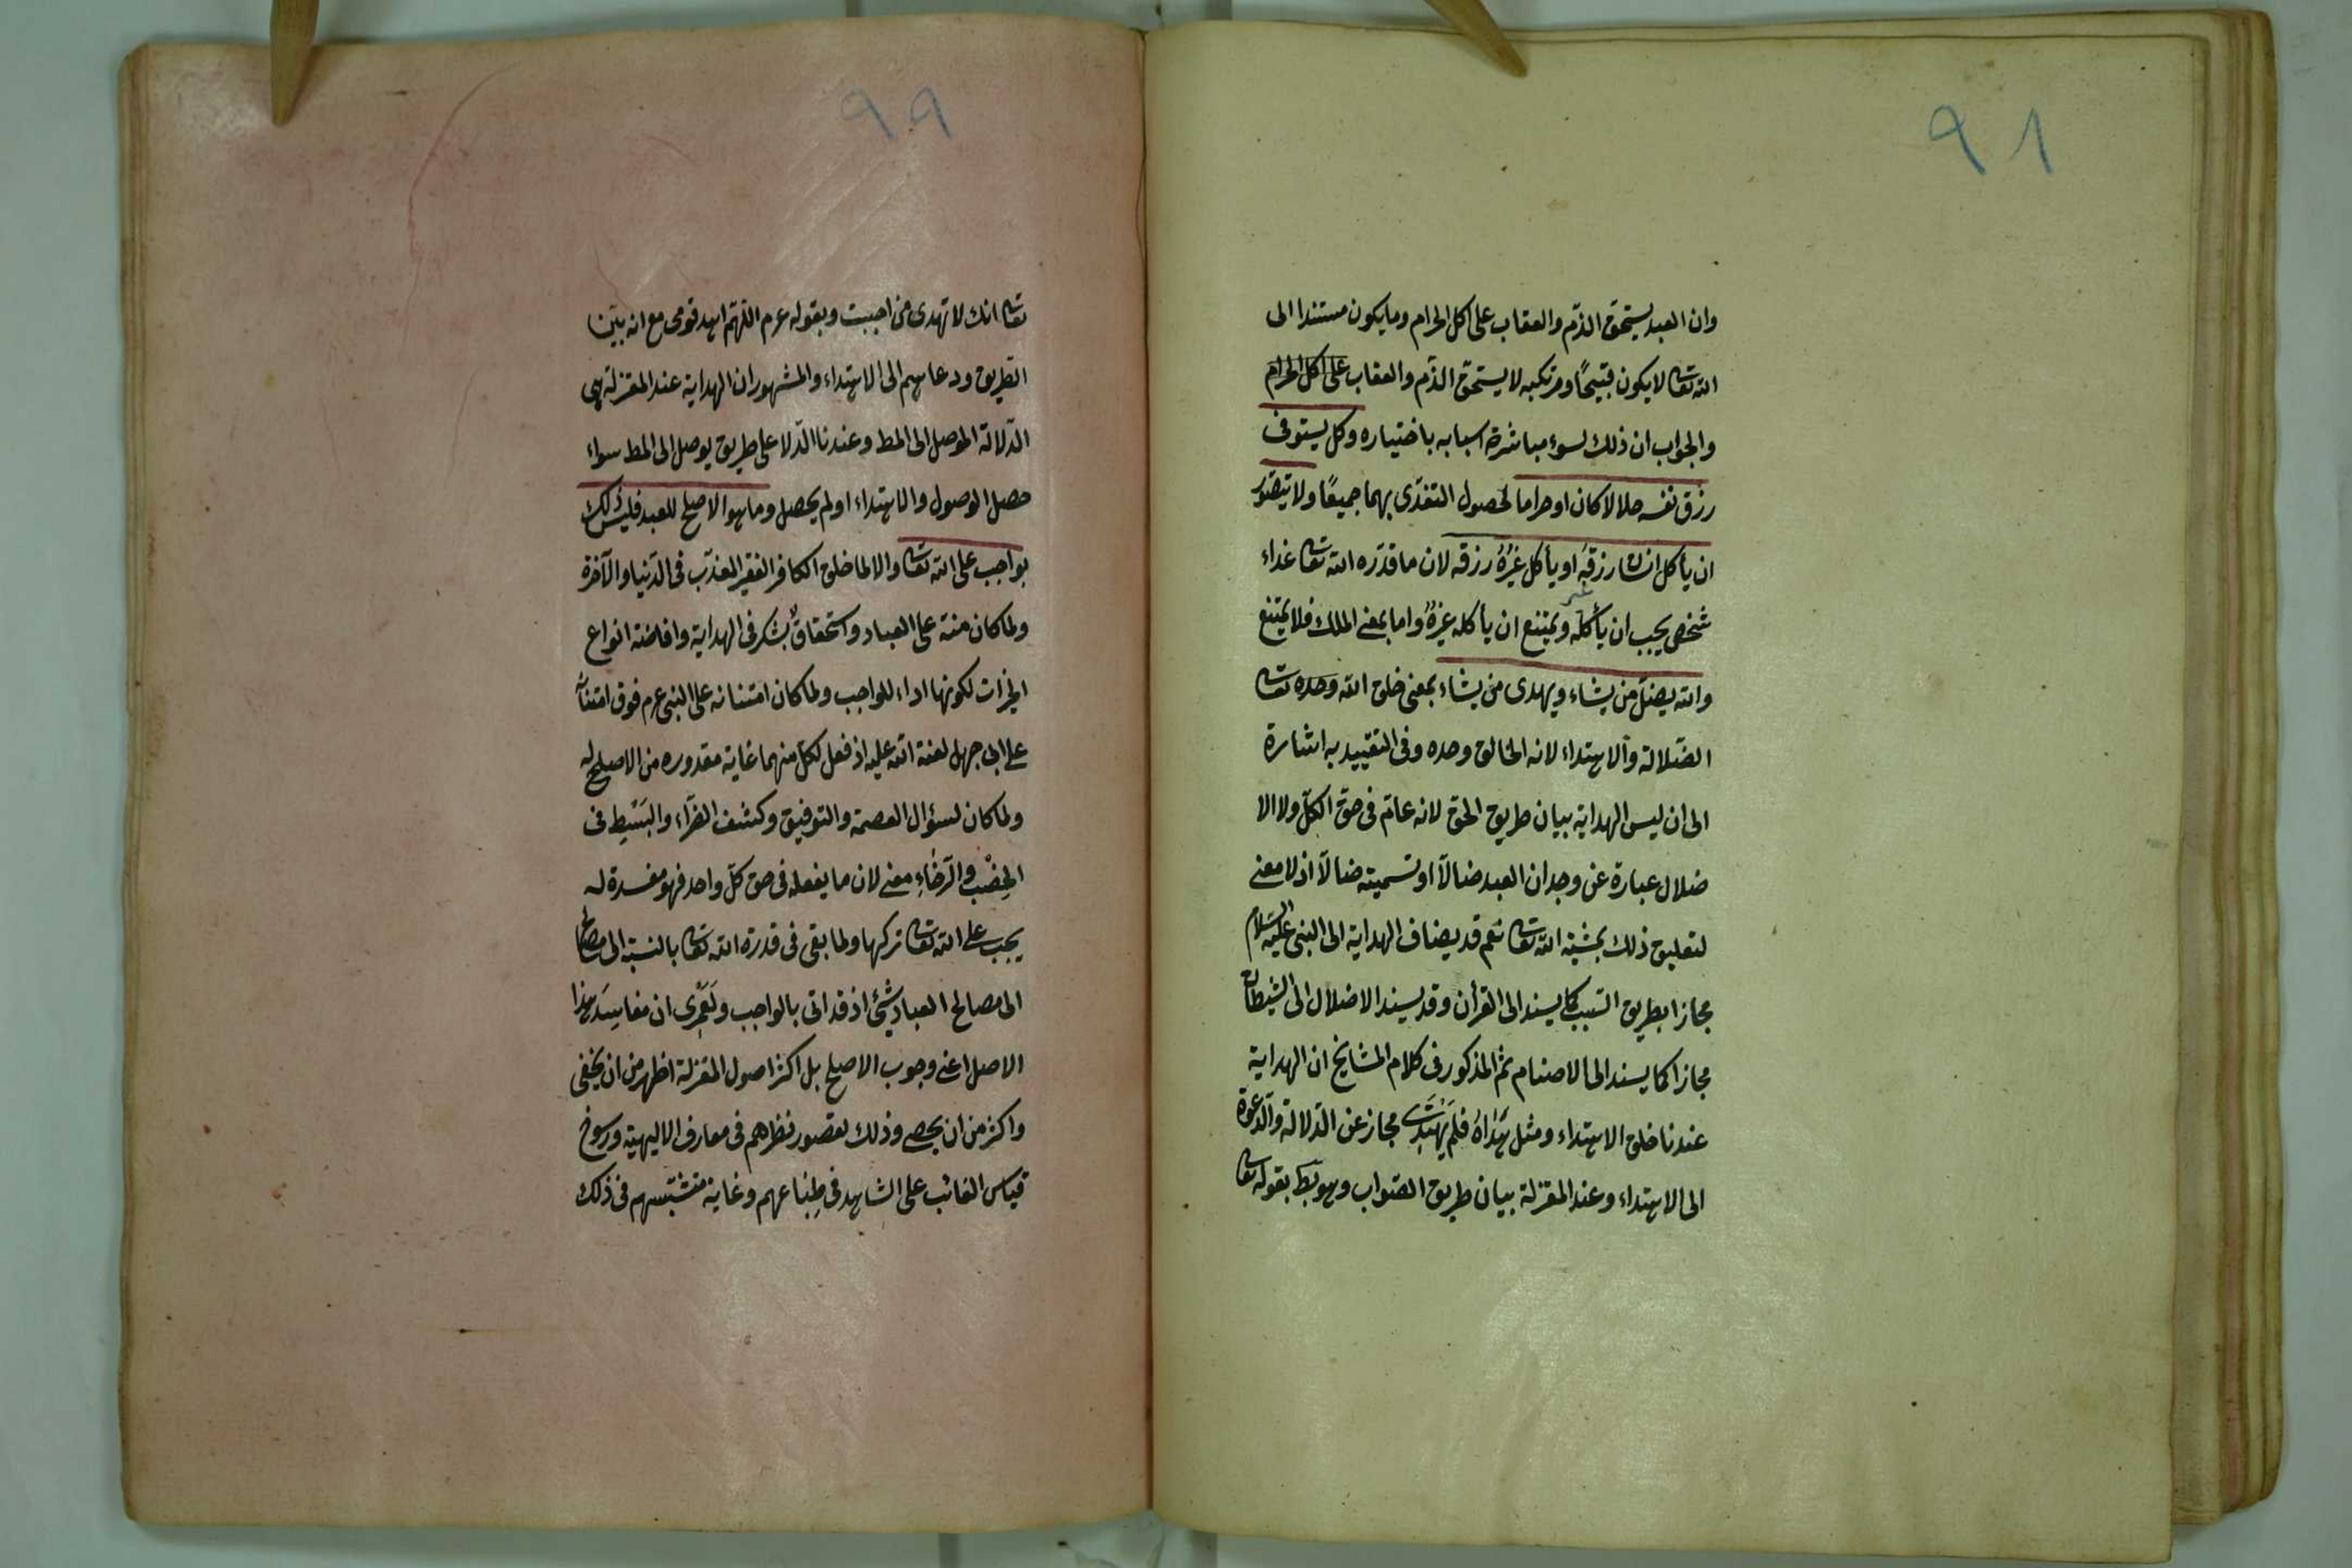 ٩٨
وان العبد يستحق الذّم والعقاب على اكل الحرام وما يكون مستندا الى
الله تعا لا يكون قبيحًا ومرتكبه لا يستحق الذّم والعقاب على اكل الحرام
والجواب ان ذلك لسوء مباشرة اسبابه باختياره وكل يستوفى
رزق نفسه حلالا كان او حراما لحصول التغذّى بهما جميعًا ولا يتصوّر
ان يأكل انسان رزقه او يأكل غيرُهُ رزقه لان ما قدّره الله تعا غذاء
شخص يجب ان يأكله ويمتنع ان يأكله غيرهُ واما بمعنى الملك فلا يمتنع
والله يضلّ من يشاء ويهدى من يشاء بمعنى خلق الله وحده تعا
الضّلالة والاهتداء لانه الخالق وحده وفى التقييد به اشارة
الى ان ليس الهداية بيان طريق الحق لانه عامّ فى حقّ الكلّ ولا الا
ضلال عبارة عن وجدان العبد ضالاّ او تسميته ضالاّ اذ لا معنى
لتعليق ذلك بمشية الله تعا نعم قد يضاف الهداية الى النبى عليه السّلام
مجازا بطريق التسبب كما يسند الى القرأن وقد يسند الاضلال الى الشيطان
مجازا كما يسند الى الاصنام ثم المذكور فى كلام المشايخ ان الهداية
عندنا خلق الاهتداء ومثل هَدٰاهُ فلَم يَهْتَدِ مجاز عن الدّلالة والدّعوة
الى الاهتداء وعند المعتزلة بيان طريق الصّواب وهو بط بقوله تعا
٩٩
تعا انك لا تهدى من احببت وبقوله عرم اللّهمّ اهد قومى مع انه بيّن
الطريق ودعاهم الى الاهتداء والمشهور ان الهداية عند المعتزلة هى
الدّلالة الموصل الى المط وعندنا الدّلا على طريق يوصل الى المط سواء
حصل الوصول والاهتداء او لم يحصل وما هو الاصلح للعبد فليس ذلك
بواجب على الله تعا والا لما خلق الكافر الفقير المعذّب فى الدّنيا والآخرة
ولما كان منة على العباد واستحقاق شكر فى الهداية وافاضة انواع
الخيرات لكونها اداء للواجب ولما كان امتنانه على النبى عرم فوق امتنانه
على ابى جهل لعنة الله عليه اذ فعل لكلّ منهما غاية مقدوره من الاصلح له
ولما كان لسؤال العصمة والتوفيق وكشف الضرّاء والبَسْط فى
الخِصْب والرّخاءِ معنى لان ما يفعله فى حق كلّ واحد فهو مفسدة له
يجب على الله تعا تركها ولما بقى فى قدرة الله تعا بالنسبة الى مصالح
الى مصالح العباد شئ اذ قد اتى بالواجب ولَعَمْرى ان مفاسِدَ هذا
الاصل اعنى وجوب الاصلح بل اكثر اصول المعتزلة اظهر من ان يخفى
واكثر من ان يحصى وذلك لقصور نظرهم فى معارف الالهية ورسوخ
قياس الغائب على الشاهد فى طِباعهم وغاية متشبّسهم فى ذلك